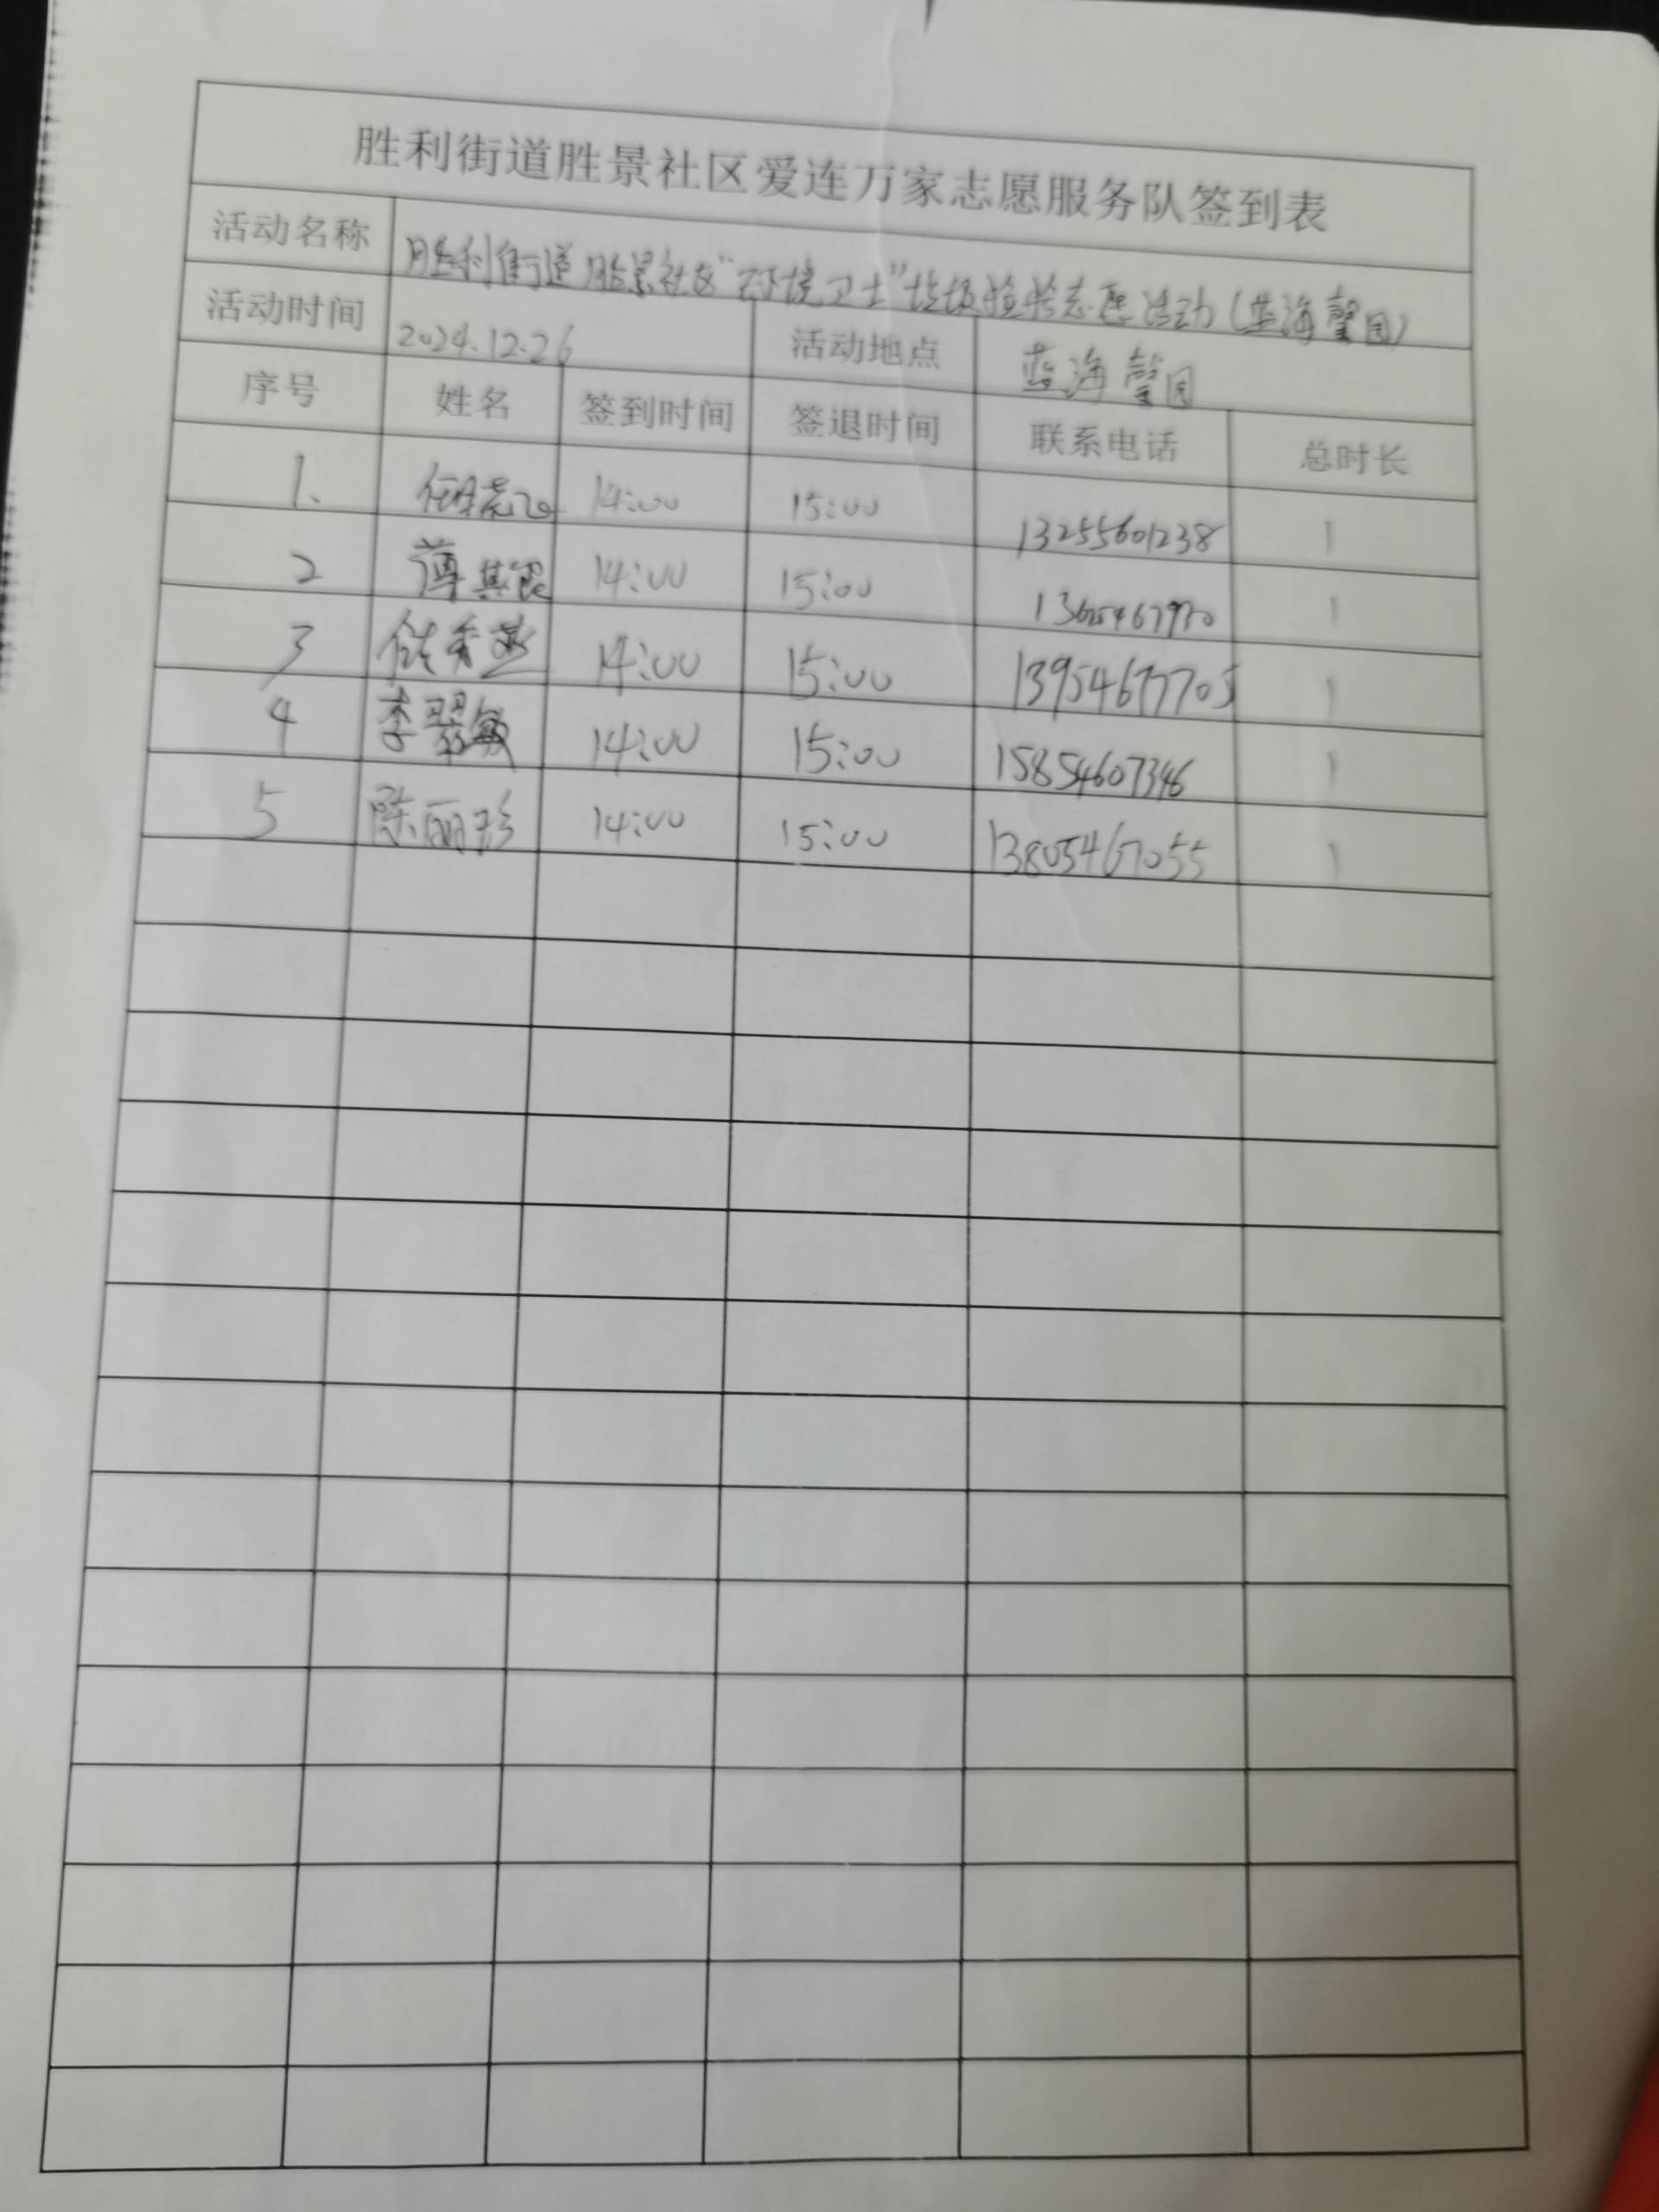 胜利街道胜景社区爱连万家志愿服务队签到表
活动名称 胜利街道胜景社区“环境卫士”垃圾捡拾志愿活动(蓝海馨园)
活动时间 2024.12.26 活动地点 蓝海馨园
序号 姓名 签到时间 签退时间 联系电话 总时长
1. 14:00 15:00 13255601238 1
2 薄其 14:00 15:00 1
3 14:00 15:00 13954677705 1
4 李翠敏 14:00 15:00 15854607346 1
5 陈丽珍 14:00 15:00 13805467055 1